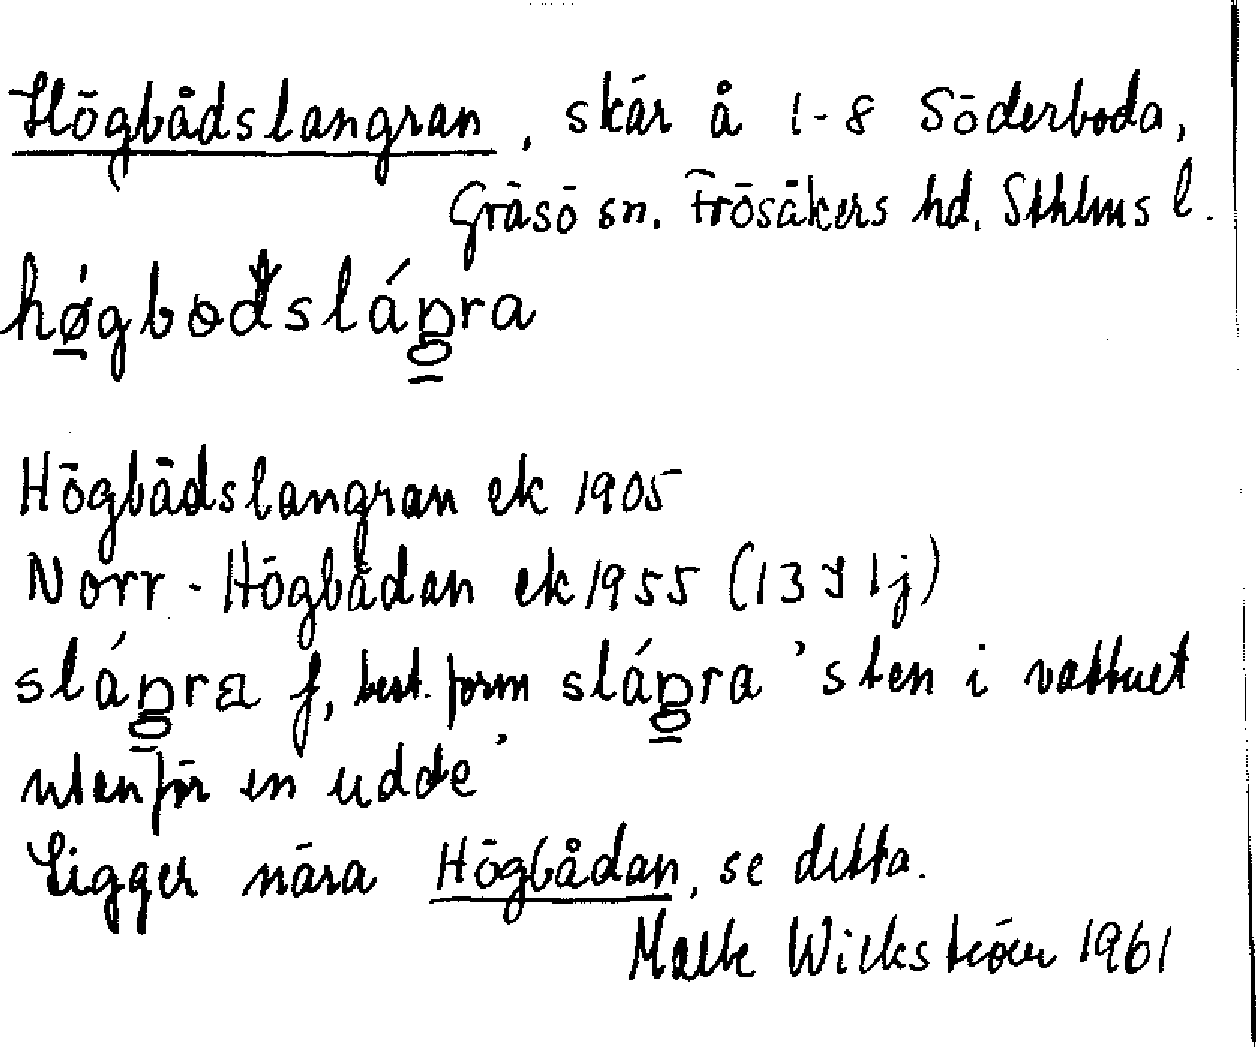 Högbådslangran, skär å 1-8 Söderboda,
Gräsö sn. Frösåkers hd. Sthlms l.
Högbådslangran ek 1905
Norr-Högbådan ek 1955 (13 I 1j)
f, best. form 'sten i vattnet
utenför en udde'
Ligger nära Högbådan, se detta.
Wickström 1961